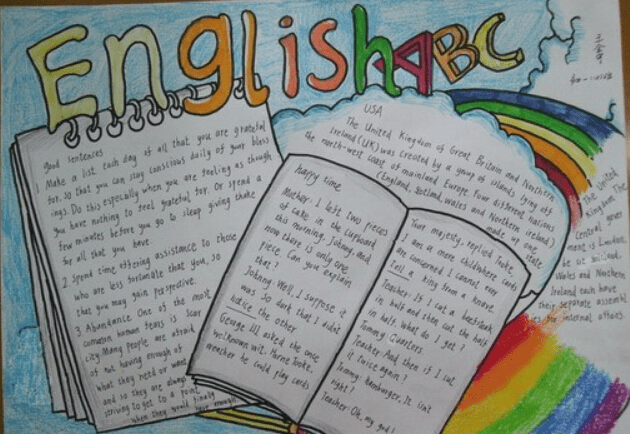 English ABC
good sentences
1 Make a list each day of all that you are grateful
for. so that you can stay conscious daily of your bless
ings. Do this especially when you are feeling as though
you have nothing to feel grateful for. Or spend a
few minutes before you go to sleep giving thanks
for all that you have
2 Spend time offering assistance to those
who are less fortunate than you, so
that you may gain perspective.
3 Abundance One of the most
common human fears is scar
city Many people are afraid
of not having enough of
what they need or want
and so they are always
striving to get to a point
when they would finally
have enough
USA
The United Kingdom of Great Britain and Northern
Ireland (UK) was created by a group of islands lying off
the north-west coast of mainland Europe Four different nations
(England, Scotland, wales and Northern ireland)
made up one
state
The United
Kingdom The
Central gover
ment is London,
Wales and Northern
Ireland each have
their separate assembl
ies for internal affairs.
happy time
Mother: I left two pieces
of cake in the cupboard
this morning, Johnny, And
now there is only one
piece. Can you explain
that?
Johnny: Well, I suppose it
was so dark that I didn't
notice the other
George III, asked the once
well known wit. Horne Tooke,
weather he could play cards
Your majesty, replied Tooke,
I am a mere child where cards
are concerned I cannot even
tell a king from a knave
Teacher: If I cut a beefsteak
in half and then cut the half
in half. What do I get?
Tommy: Quarters.
Teacher: And then if I cut
it twice again?
Tommy: Hamburger, It isn't
right!
Teacher: Oh, my god!